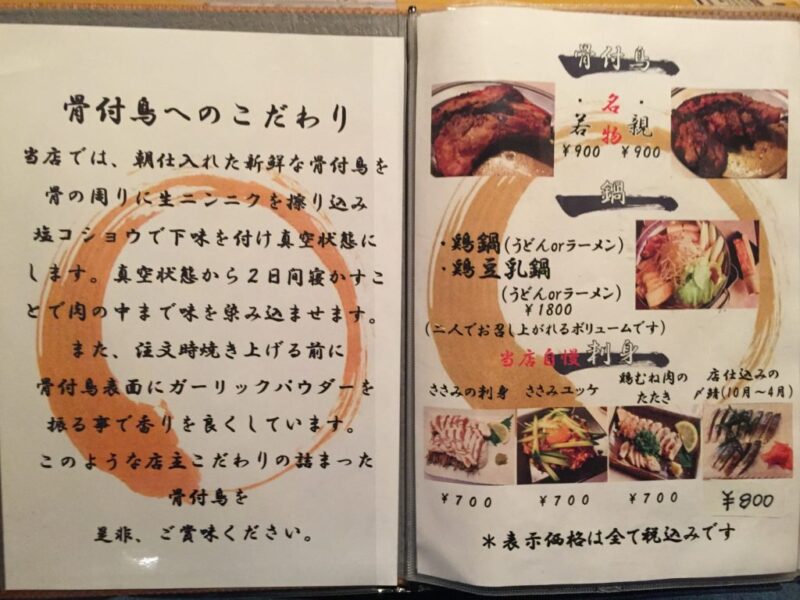 骨付鳥へのこだわり
当店では、朝仕入れた新鮮な骨付鳥を
骨の周りに生ニンニクを擦り込み
塩コショウで下味を付け真空状態に
します。真空状態から２日間寝かすこ
とで肉の中まで味を染み込ませます。
また、注文時焼き上げる前に
骨付鳥表面にガーリックパウダーを
振る事で香りを良くしています。
このような店主こだわりの詰まった
骨付鳥を
是非、ご賞味ください。
骨付鳥
名物
・若 ・親
¥900 ¥900
鍋
・鶏鍋(うどんorラーメン)
・鶏豆乳鍋
(うどんorラーメン)
¥1800
(二人でお召し上がれるボリュームです)
当店自慢 刺身
ささみの刺身 ささみユッケ 鶏むね肉のたたき 店仕込みの〆鯖(10月～4月)
¥700 ¥700 ¥700 ¥800
＊表示価格は全て税込みです